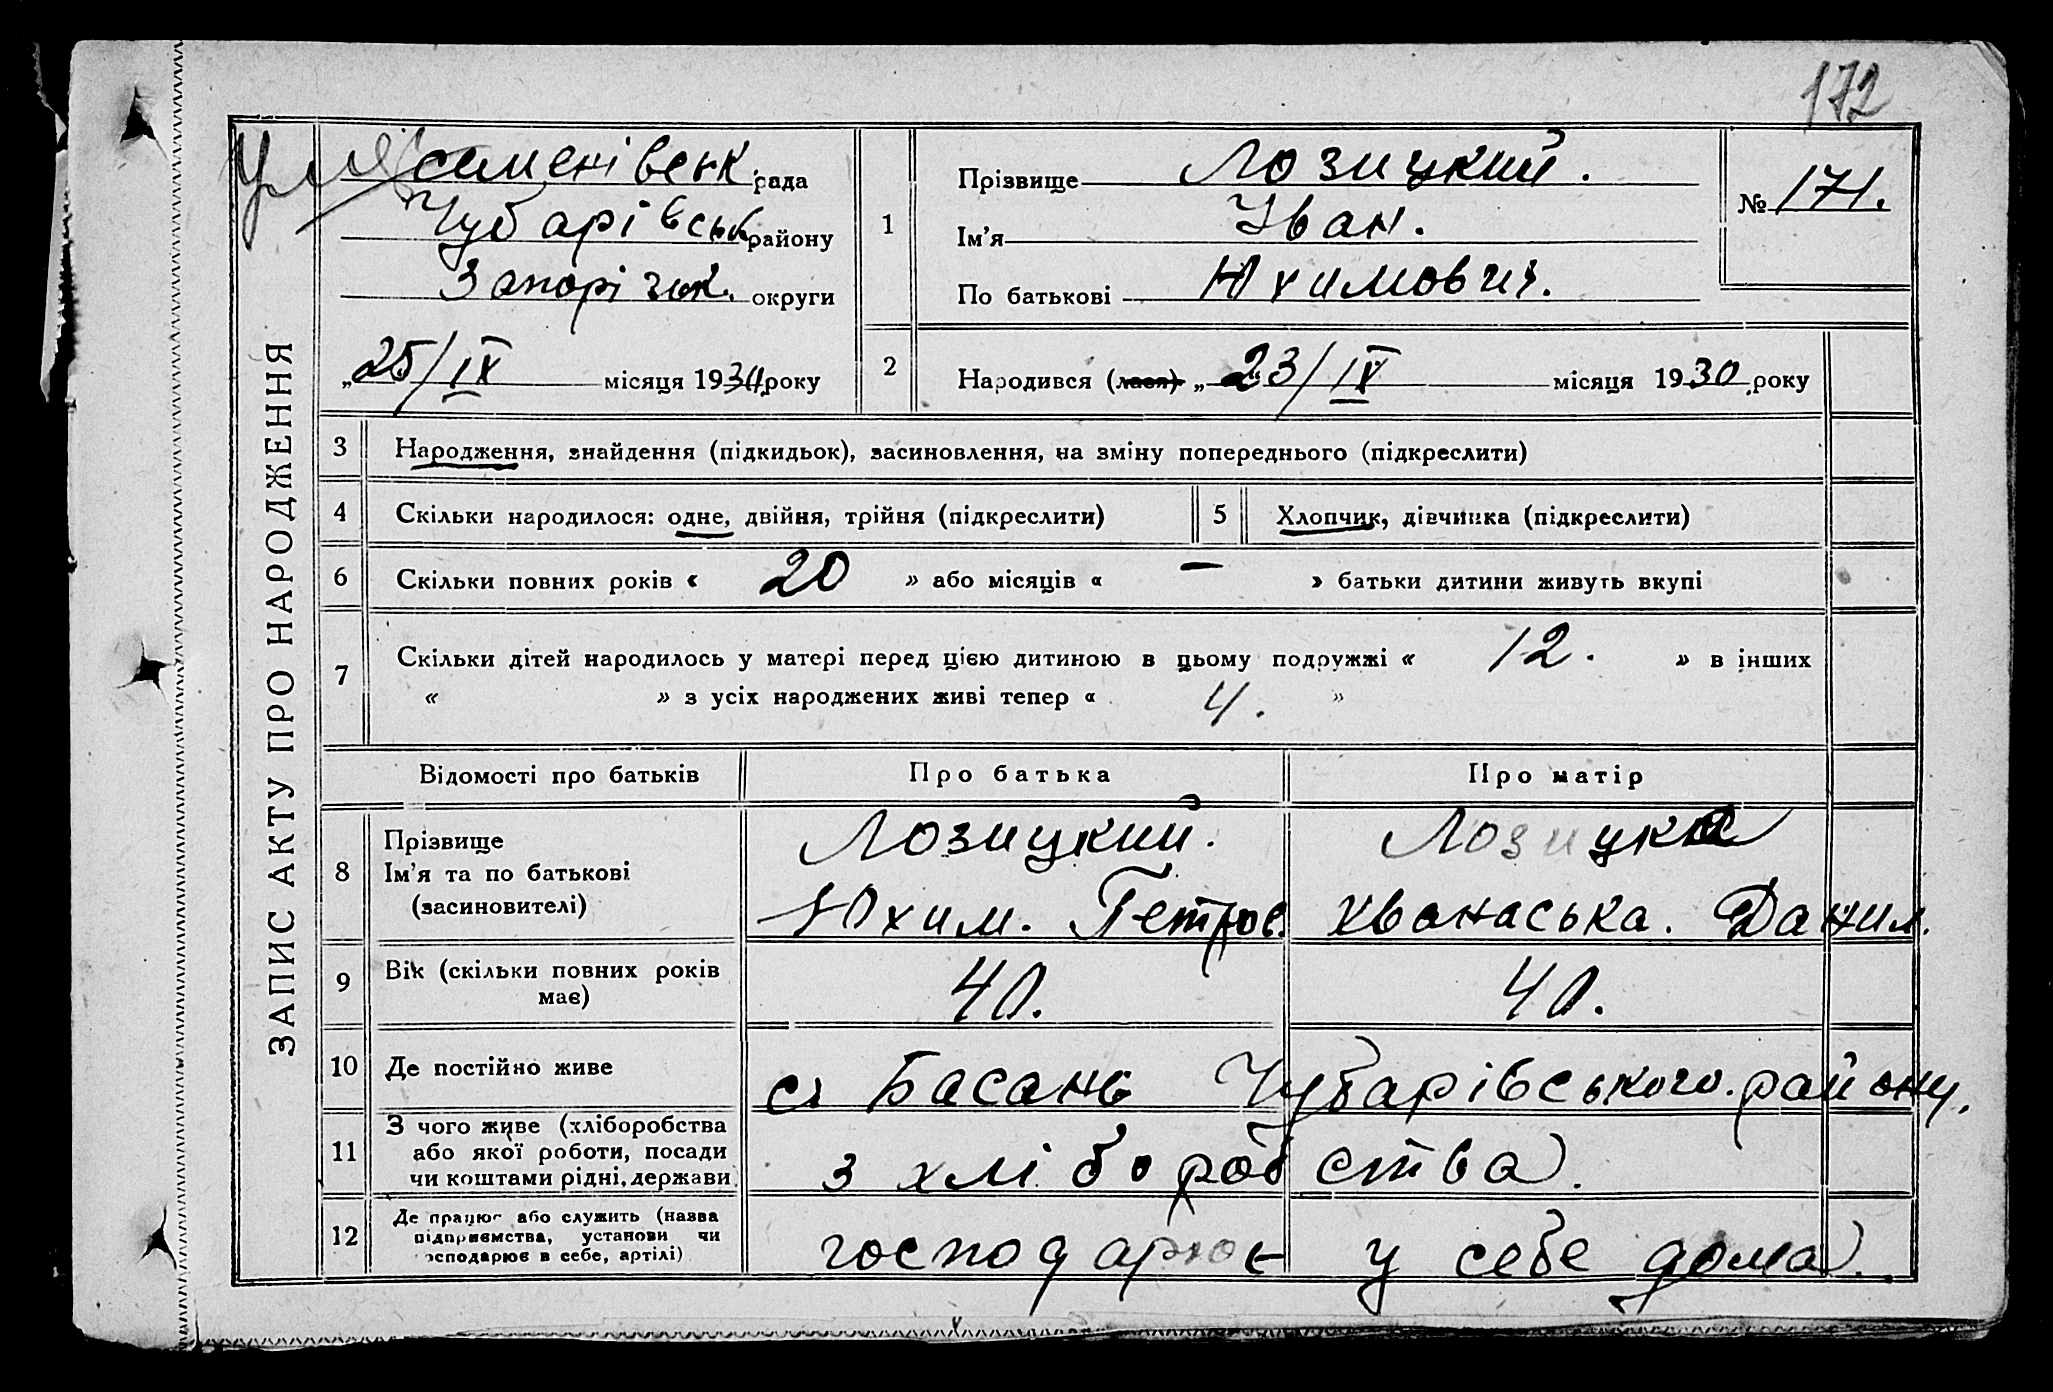 172
Семенівськ. рада
Чубарівськ району
Запоріжж. округи
„25/IX місяця 1930 року
1 Прізвище Лозицкий.
Ім’я Іван.
По батькові Юхимович.
№ 171.
2 Народився (лася) „23/IX місяця 1930 року
ЗАПИС АКТУ ПРО НАРОДЖЕННЯ
3 Народження, знайдення (підкидьок), засиновлення, на зміну попереднього (підкреслити)
4 Скільки народилося: одне, двійня, трійня (підкреслити) 5 Хлопчик, дівчинка (підкреслити)
6 Скільки повних років « 20 » або місяців « — » батьки дитини живуть вкупі
7 Скільки дітей народилось у матері перед цією дитиною в цьому подружжі « 12. » в інших
« » з усіх народжених живі тепер « 4. »
Відомості про батьків Про батька Про матір
8 Прізвище
Ім’я та по батькові
(засиновителі)
Лозицкий. Лозицка
Юхим. Петров. Хванаська. Данил.
9 Вік (скільки повних років
має)
40. 40.
10 Де постійно живе с. Басань Чубарівського району.
11 З чого живе (хліборобства
або якої роботи, посади
чи коштами рідні, держави
з хліборобства.
12 Де працює або служить (назва
підприємства, установи чи
господарює в себе, артілі)
господарює у себе дома.